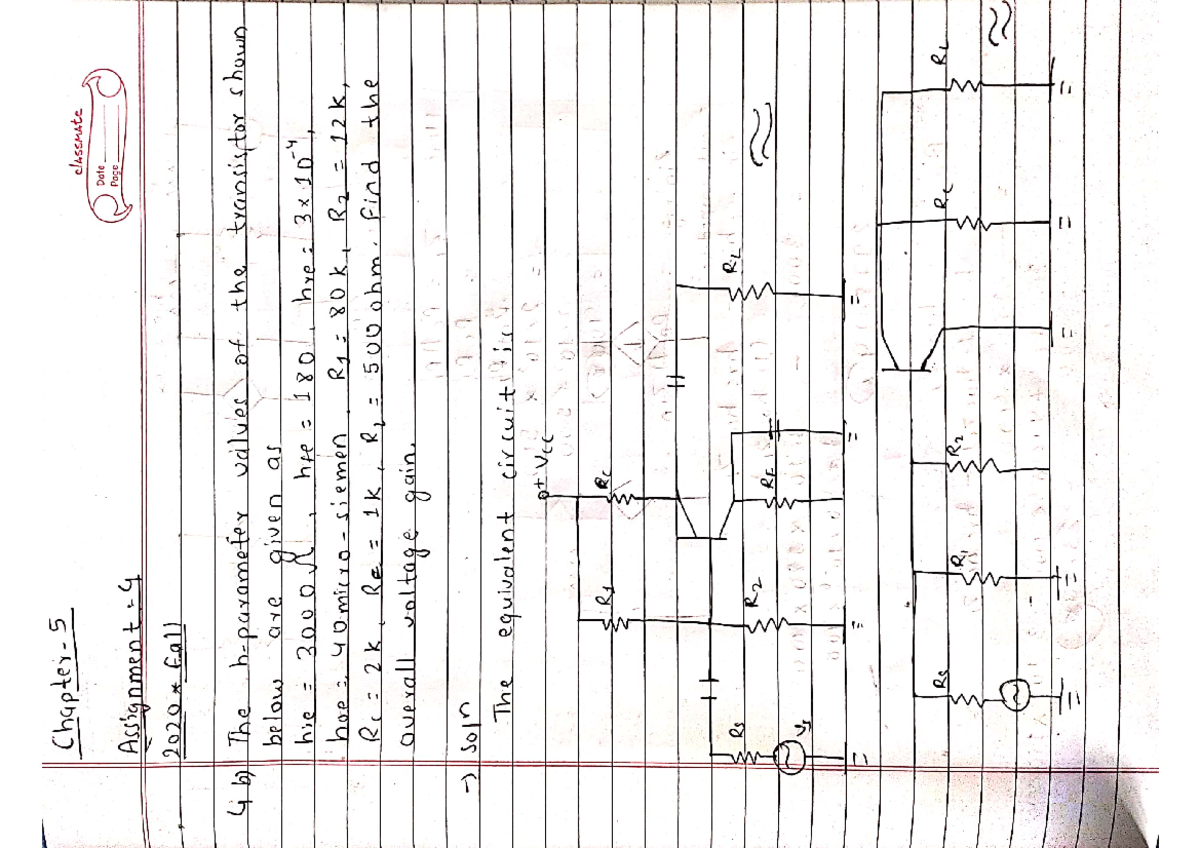 classmate
Date
Page
Chapter-5
Assignment-4
2020 * fall
4 b) The h-parameter values of the transistor shown
below are given as
hie = 3000 Ω, hfe = 180, hre = 3×10⁻⁴,
hoe = 40 micro-siemen, R1 = 80k, R2 = 12k,
Rc = 2k, Re = 1k, RL = 500 ohm. find the
overall voltage gain.
→ soln
The equivalent circuit is
+Vcc
R1
Rc
Rs
R2
RE
RL
Vs
Rs
R1
R2
Rc
RL